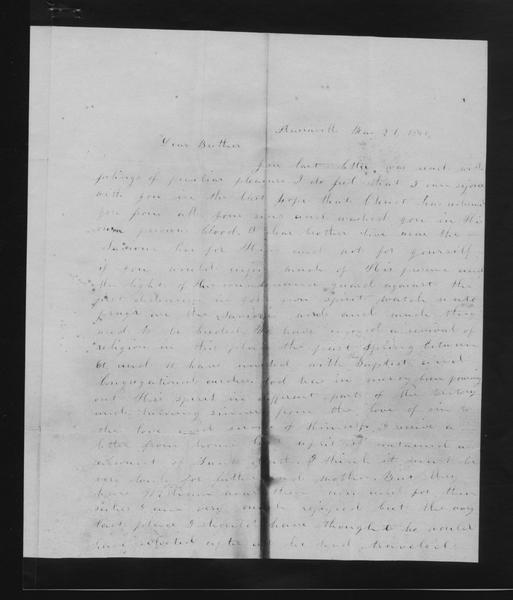 Dear Brother
Your last letter was read with
feelings of peculiar pleasure I do feel that I can rejoice
with you in the hope that Christ has
you from all your sins and washed you in His
own precious blood. O dear brother live near the
Saviour live for Him and not for yourself.
if you would enjoy much of His presence and
the light of His countenance guard against the
first in your own spirit watch unto
prayer are the Saviors words and much they
need to be heeded. We have enjoyed a revival of
religion in this place the past spring between
60 and have united with Baptist and
Congregational churches God has in mercy been pouring
out His spirit in different parts of the territory
and turning sinners from the love of sin to
the love and service of Himself. I received a
letter from home last april it contained an
account of I think it must be
very hard for father and mother. But they
have William near them now and for their
sakes I am very much rejoiced but the very
last place I should have thought he would
have selected after all he had traveled